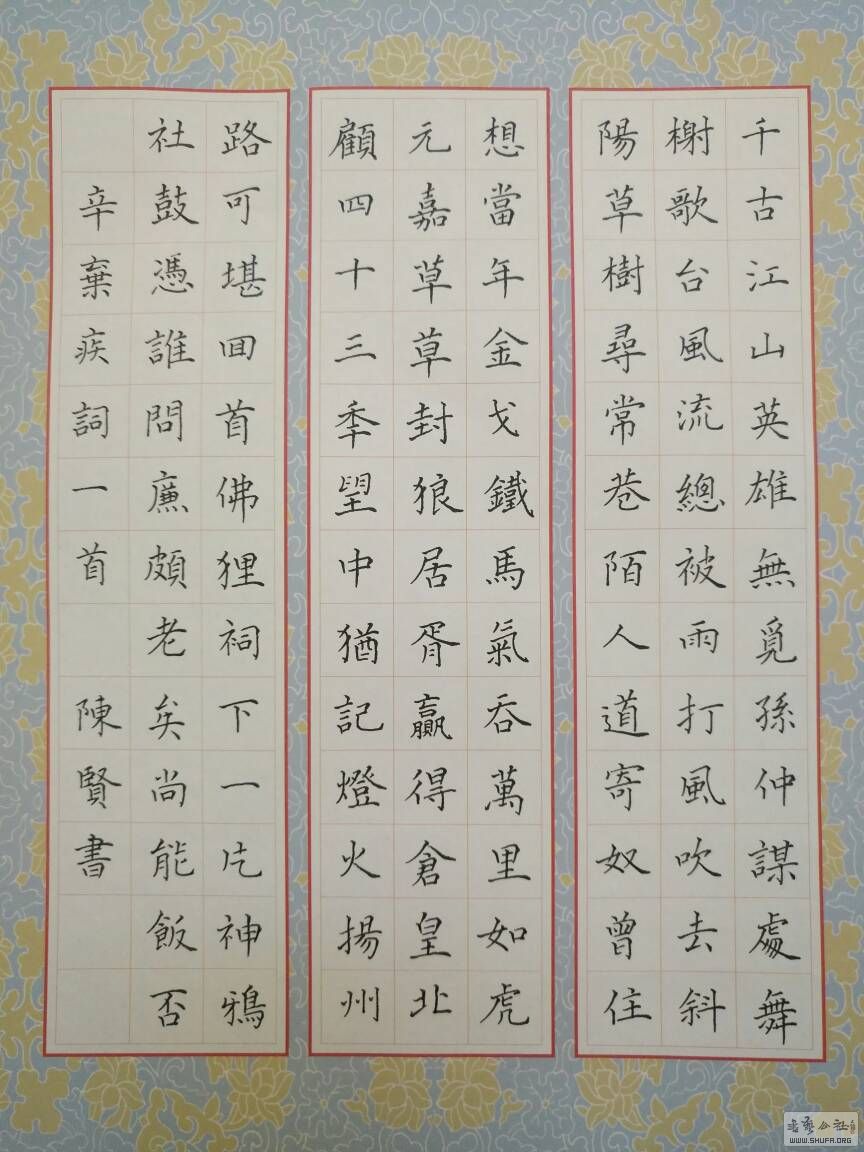 千古江山英雄無覓孫仲謀處舞
榭歌台風流總被雨打風吹去斜
陽草樹尋常巷陌人道寄奴曾住
想當年金戈鐵馬氣吞萬里如虎
元嘉草草封狼居胥贏得倉皇北
顧四十三秊望中猶記燈火揚州
路可堪回首佛狸祠下一片神鴉
社鼓憑誰問廉頗老矣尚能飯否
辛棄疾詞一首 陳賢書
書藝公社
WWW.SHUFA.ORG